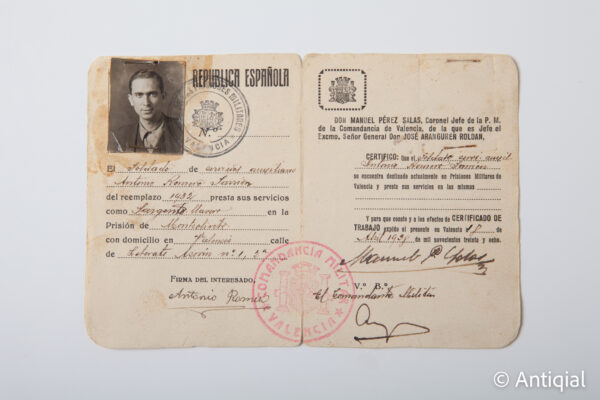 REPUBLICA ESPAÑOLA
PRISIONES MILITARES
Nº
VALENCIA
El Soldado de servicios auxiliares
Antonio Romero
del reemplazo 1932 presta sus servicios
como Sargento en la
Prisión de Monteolivete
con domicilio en Valencia calle
de Literato Azorín nº 1, 2ª
FIRMA DEL INTERESADO:
Antonio Romero
DON MANUEL PÉREZ SALAS, Coronel Jefe de la P. M.
de la Comandancia de Valencia, de la que es Jefe el
Excmo. Señor General Don JOSÉ ARANGUREN ROLDAN.
CERTIFICO: Que el Soldado serv. auxil
Antonio Romero
se encuentra destinado actualmente en Prisiones Militares de
Valencia y presta sus servicios en las mismas
Y para que conste y a los efectos de CERTIFICADO DE
TRABAJO expido el presente en Valencia de
de mil novecientos treinta y ocho.
Manuel P. Salas
V.º B.º
El Comandante Militar
COMANDANCIA MILITAR
VALENCIA
© Antiqial